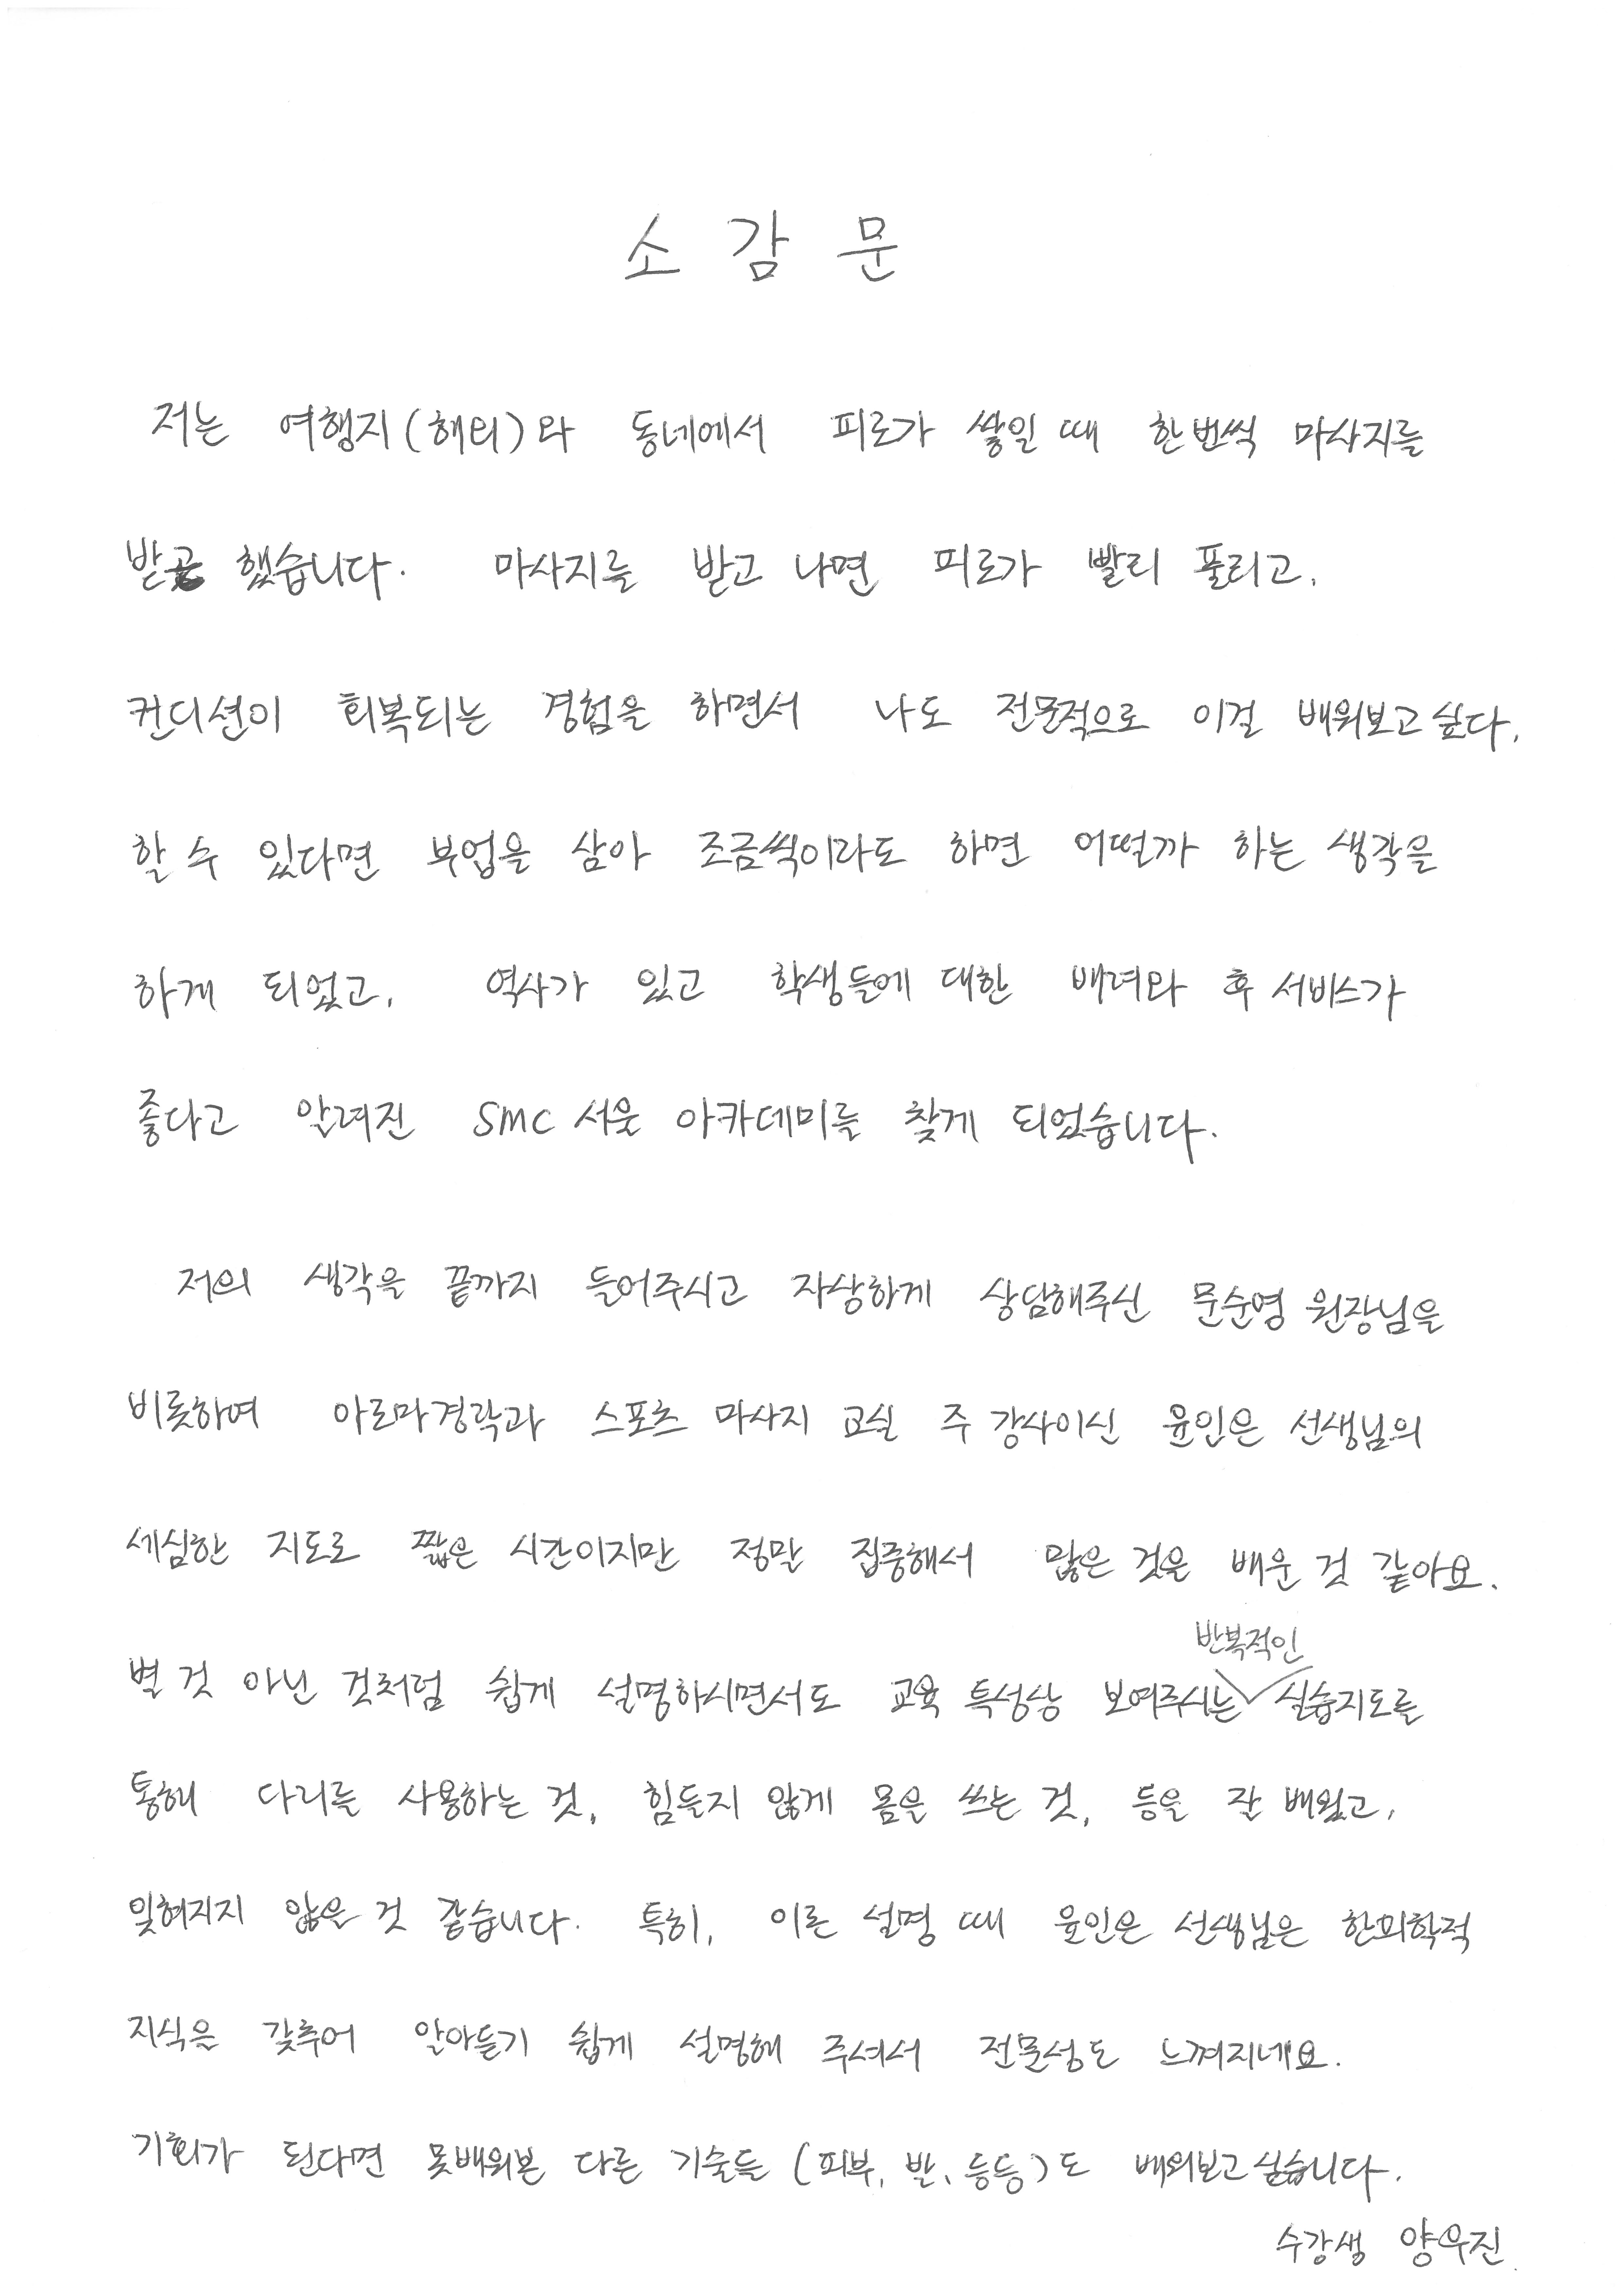 소 감 문
저는 여행지(해외)와 동네에서 피로가 쌓일 때 한번씩 마사지를
받곤 했습니다. 마사지를 받고 나면 피로가 빨리 풀리고,
컨디션이 회복되는 경험을 하면서 나도 전문적으로 이걸 배워보고 싶다,
할 수 있다면 부업을 삼아 조금씩이라도 하면 어떨까 하는 생각을
하게 되었고, 역사가 있고 학생들에 대한 배려와 후 서비스가
좋다고 알려진 SMC 서울 아카데미를 찾게 되었습니다.
저의 생각을 끝까지 들어주시고 자상하게 상담해주신 문순영 원장님을
비롯하여 아로마경락과 스포츠 마사지 교실 주 강사이신 윤인은 선생님의
세심한 지도로 짧은 시간이지만 정말 집중해서 많은 것을 배운 것 같아요.
별 것 아닌 것처럼 쉽게 설명하시면서도 교육 특성상 보여주시는 반복적인 실습지도를
통해 다리를 사용하는 것, 힘들지 않게 몸을 쓰는 것, 등을 잘 배웠고,
잊혀지지 않은 것 같습니다. 특히, 이론 설명 때 윤인은 선생님은 한의학적
지식을 갖추어 알아듣기 쉽게 설명해 주셔서 전문성도 느껴지네요.
기회가 된다면 못배워본 다른 기술들 (피부, 발, 등등)도 배워보고 싶습니다.
수강생 양우진.